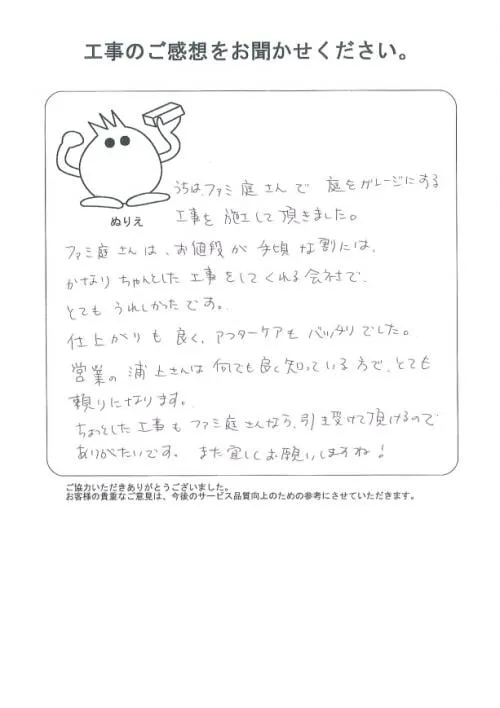 工事のご感想をお聞かせください。
ぬりえ
うちは、ファミ庭さんで 庭をガレージにする
工事を施工して頂きました。
ファミ庭さんは、お値段が手頃な割には、
かなりちゃんとした工事をしてくれる会社で、
とてもうれしかったです。
仕上がりも良く、アフターケアもバッチリでした。
営業の浦上さんは何でも良く知っている方で、とても
頼りになります。
ちょっとした工事もファミ庭さんなら、引き受けて頂けるので
ありがたいです。また宜しくお願いしますね!
ご協力いただきありがとうございました。
お客様の貴重なご意見は、今後のサービス品質向上のための参考にさせていただきます。